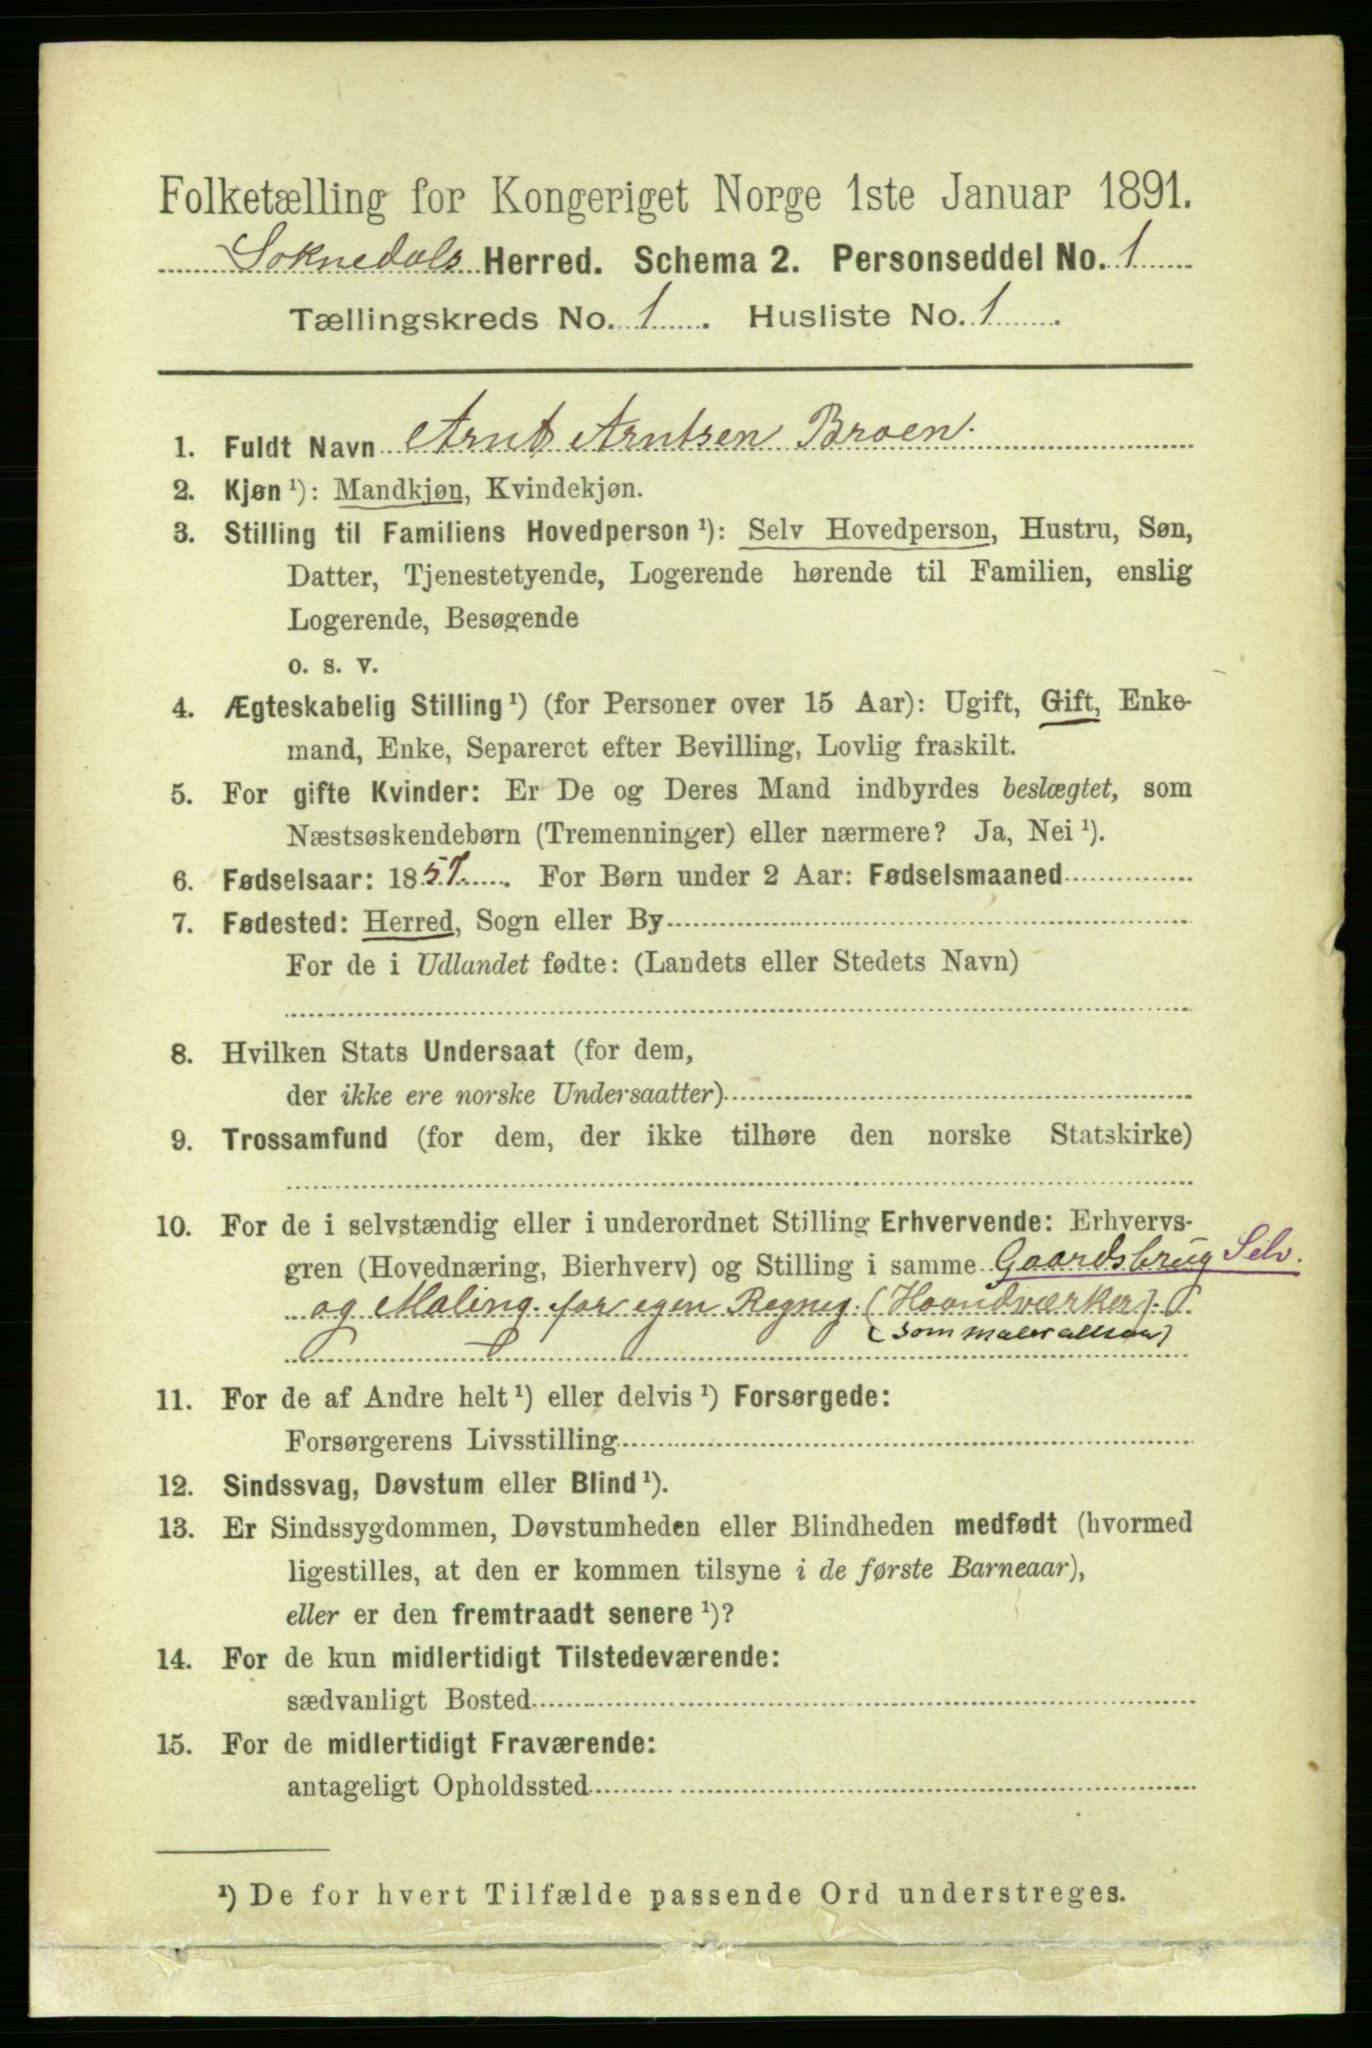 Folketælling for Kongeriget Norge 1ste Januar 1891.
Soknedals Herred. Schema 2. Personseddel No. 1
Tællingskreds No. 1. Husliste No. 1.
1. Fuldt Navn Arnt Arntsen Broen.
2. Kjøn ¹): Mandkjøn, Kvindekjøn.
3. Stilling til Familiens Hovedperson ¹): Selv Hovedperson, Hustru, Søn,
Datter, Tjenestetyende, Logerende hørende til Familien, enslig
Logerende, Besøgende
o. s. v.
4. Ægteskabelig Stilling ¹) (for Personer over 15 Aar): Ugift, Gift, Enke-
mand, Enke, Separeret efter Bevilling, Lovlig fraskilt.
5. For gifte Kvinder: Er De og Deres Mand indbyrdes beslægtet, som
Næstsøskendebørn (Tremenninger) eller nærmere? Ja, Nei ¹).
6. Fødselsaar: 1857. For Børn under 2 Aar: Fødselsmaaned
7. Fødested: Herred, Sogn eller By
For de i Udlandet fødte: (Landets eller Stedets Navn)
8. Hvilken Stats Undersaat (for dem,
der ikke ere norske Undersaatter)
9. Trossamfund (for dem, der ikke tilhøre den norske Statskirke)
10. For de i selvstændig eller i underordnet Stilling Erhvervende: Erhvervs-
gren (Hovednæring, Bierhverv) og Stilling i samme Gaardsbrug Selv.
og Maling for egen Regneg. (Haandværker).
(som maler altsaa)
11. For de af Andre helt ¹) eller delvis ¹) Forsørgede:
Forsørgerens Livsstilling
12. Sindssvag, Døvstum eller Blind ¹).
13. Er Sindssygdommen, Døvstumheden eller Blindheden medfødt (hvormed
ligestilles, at den er kommen tilsyne i de første Barneaar),
eller er den fremtraadt senere ¹)?
14. For de kun midlertidigt Tilstedeværende:
sædvanligt Bosted
15. For de midlertidigt Fraværende:
antageligt Opholdssted
¹) De for hvert Tilfælde passende Ord understreges.